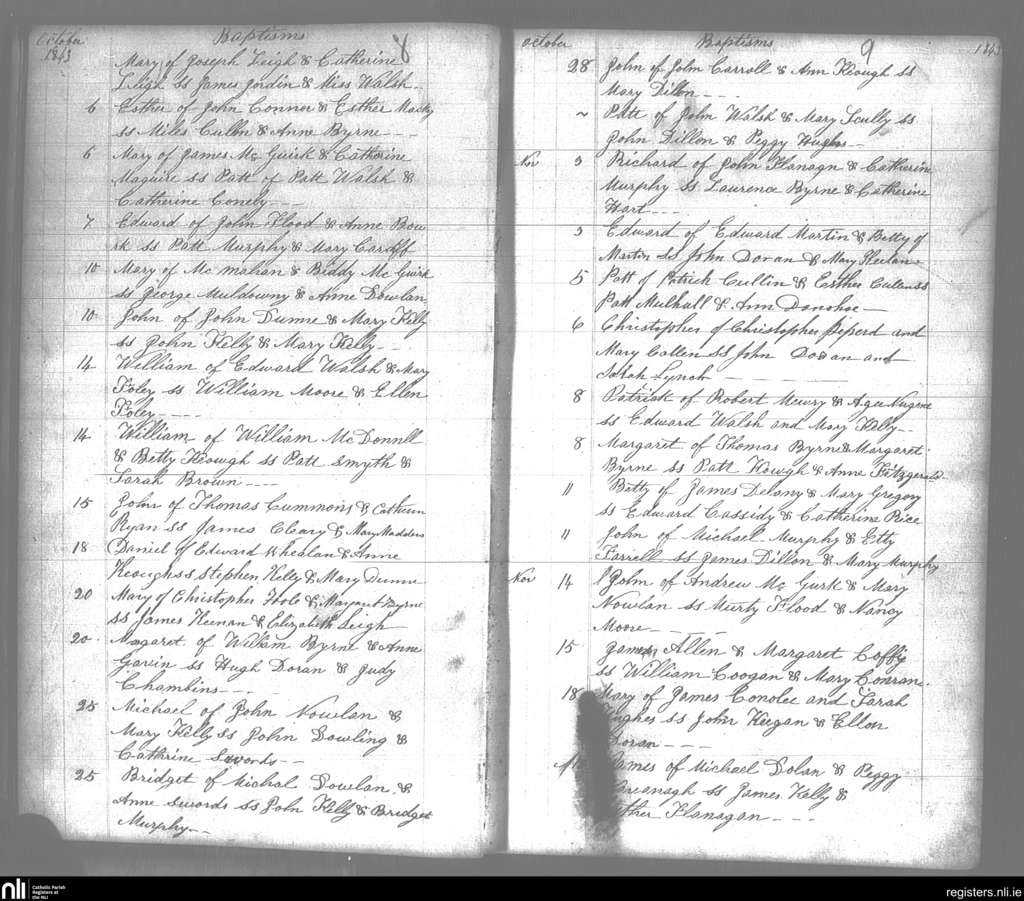 October
1843
Baptisms
8
Mary of Joseph Leigh & Catherine
Leigh ss James Jordin & Miss Walsh
6 Esther of John Connor & Esther Macky
ss Miles Cullen & Anne Byrne
6 Mary of James Mc Guirk & Catherine
Maguire ss Patt of Patt Walsh &
Catherine Coneby
7 Edward of John Flood & Anne Bou
rk ss Patt Murphy & Mary Cardiff
10 Mary of Mc mahan & Biddy Mc Guirk
ss George Muldowny & Anne Dowlan
10 John of John Dunne & Mary Kelly
ss John Kelly & Mary Kelly
14 William of Edward Walsh & Mary
Foley ss William Moore & Ellen
Foley
14 William of William McDonnll
& Betty Keough ss Patt Smyth &
Sarah Brown
15 John of Thomas Cummons & Catherin
Ryan ss James Cleary & Mary Madders
18 Daniel of Edward Whealan & Anne
Keough ss Stephen Kelly & Mary Dunne
20 Mary of Christopher Toole & Margaret Byrne
ss James Keenan & Elizabeth Leigh
20 Magaret of William Byrne & Anne
Garvin ss Hugh Doran & Judy
Chambins
25 Michael of John Nowlan &
Mary Kelly ss John Dowling &
Cathrine Swords
25 Bridget of Michal Dowlan &
Anne Swords ss John Kelly & Bridget
Murphy
October
Baptisms
9
1843
28 John of John Carroll & Ann Keough ss
Mary Dillon
~ Patt of John Walsh & Mary Scully ss
John Dillon & Peggy Hughes
Nov 3 Richard of John Flanagn & Catherin
Murphy ss Laurence Byrne & Catherine
Hart
3 Edward of Edward Martin & Betty of
Martin ss John Doran & Mary Pheelan
5 Patt of Patrick Cullin & Esther Culen ss
Patt Mulhall & Ann Donohoe
6 Christopher of Christopher Peperd and
Mary Callen ss John Doran and
Sarah Lynch
8 Patrick of Robert Newry & Nugene
ss Edward Walsh and Mary Kelly
8 Margaret of Thomas Byrne & Margaret
Byrne ss Patt Kowgh & Anne Fitzgerald
11 Betty of James Delany & Mary Gregory
ss Edward Cassidy & Catherine Rice
11 John of Michael Murphy & Etty
Farrell ss James Dillon & Mary Murphy
Nov 14 John of Andrew Mc Gurk & Mary
Nowlan ss Murty Flood & Nancy
Moore
15 James Allen & Margaret Coffy
ss William Coogan & Mary Conran
18 Mary of James Conolee and Sarah
Hughes ss John Keegan & Ellen
Doran
James of Michael Dolan & Peggy
Kavanagh ss James Kelly &
Esther Flanagan
nli
Catholic Parish
Registers at
the NLI
registers.nli.ie